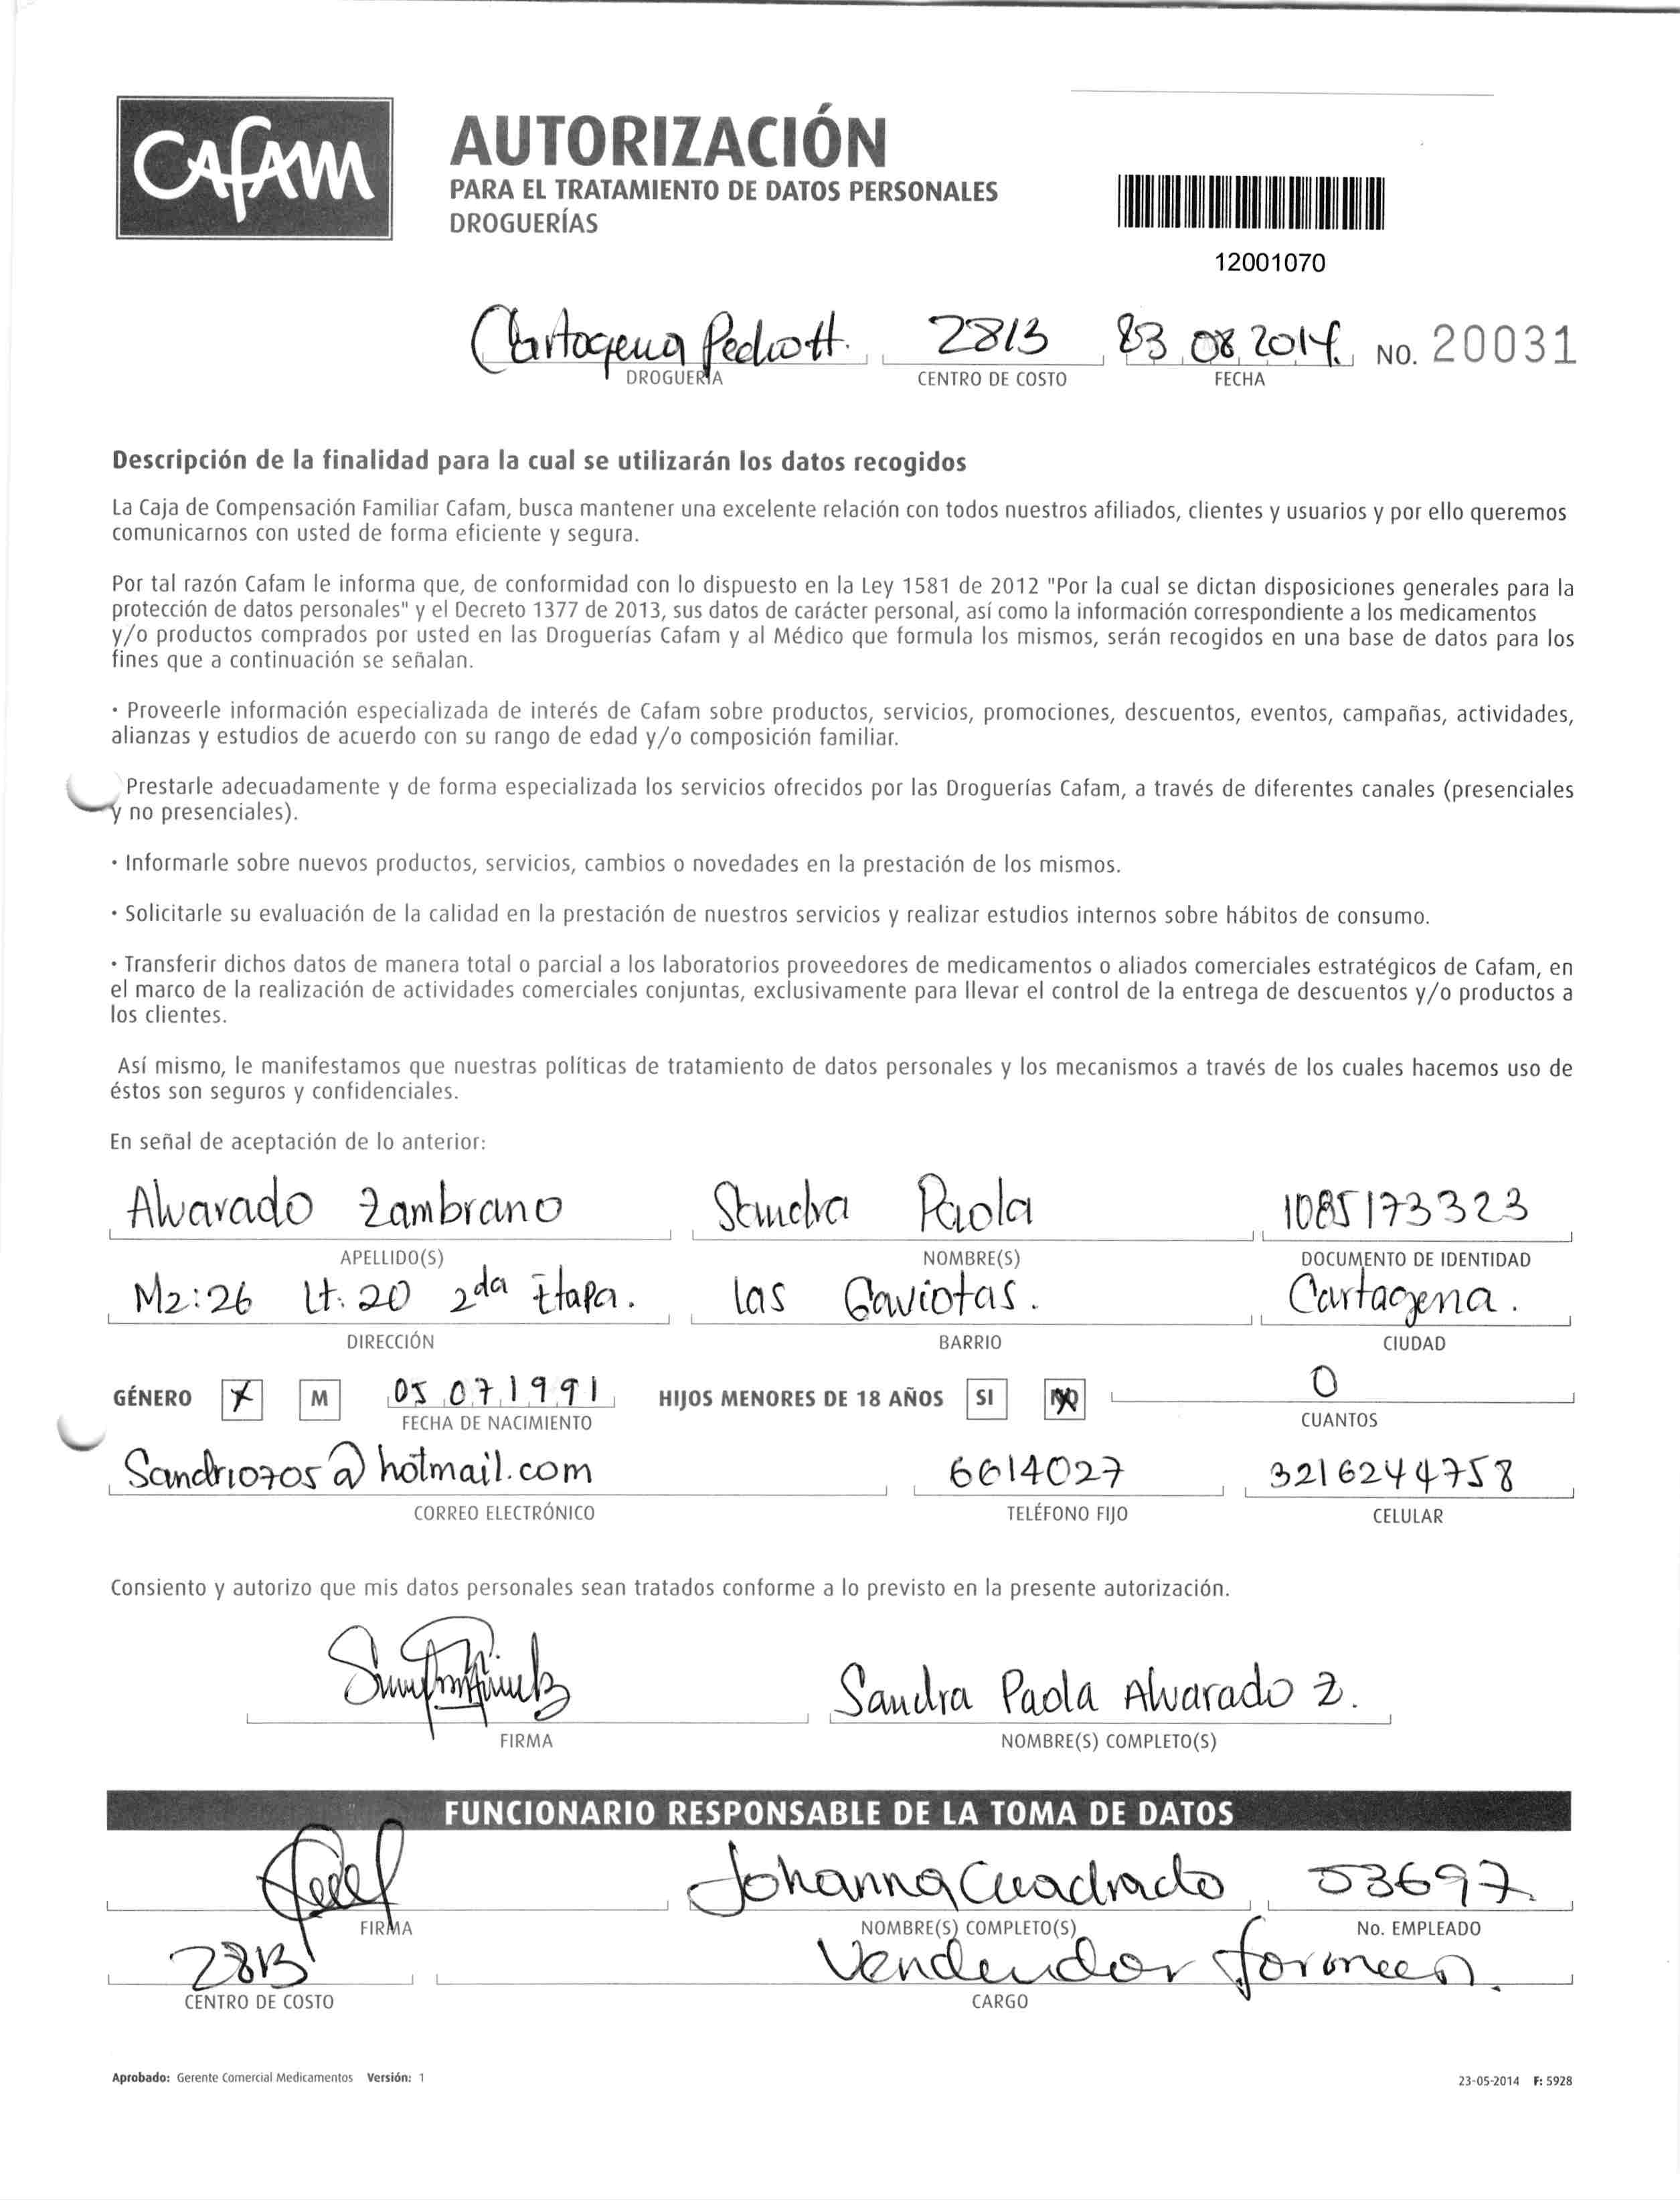 CAFAM
AUTORIZACIÓN
PARA EL TRATAMIENTO DE DATOS PERSONALES
DROGUERÍAS
12001070
Cartagena 2813 08 2014 NO. 20031
DROGUERÍA CENTRO DE COSTO FECHA
Descripción de la finalidad para la cual se utilizarán los datos recogidos
La Caja de Compensación Familiar Cafam, busca mantener una excelente relación con todos nuestros afiliados, clientes y usuarios y por ello queremos
comunicarnos con usted de forma eficiente y segura.
Por tal razón Cafam le informa que, de conformidad con lo dispuesto en la Ley 1581 de 2012 "Por la cual se dictan disposiciones generales para la
protección de datos personales" y el Decreto 1377 de 2013, sus datos de carácter personal, así como la información correspondiente a los medicamentos
y/o productos comprados por usted en las Droguerías Cafam y al Médico que formula los mismos, serán recogidos en una base de datos para los
fines que a continuación se señalan.
• Proveerle información especializada de interés de Cafam sobre productos, servicios, promociones, descuentos, eventos, campañas, actividades,
alianzas y estudios de acuerdo con su rango de edad y/o composición familiar.
Prestarle adecuadamente y de forma especializada los servicios ofrecidos por las Droguerías Cafam, a través de diferentes canales (presenciales
y no presenciales).
• Informarle sobre nuevos productos, servicios, cambios o novedades en la prestación de los mismos.
• Solicitarle su evaluación de la calidad en la prestación de nuestros servicios y realizar estudios internos sobre hábitos de consumo.
• Transferir dichos datos de manera total o parcial a los laboratorios proveedores de medicamentos o aliados comerciales estratégicos de Cafam, en
el marco de la realización de actividades comerciales conjuntas, exclusivamente para llevar el control de la entrega de descuentos y/o productos a
los clientes.
Así mismo, le manifestamos que nuestras políticas de tratamiento de datos personales y los mecanismos a través de los cuales hacemos uso de
éstos son seguros y confidenciales.
En señal de aceptación de lo anterior:
Alvarado Zambrano Sandra Paola 1085173323
APELLIDO(S) NOMBRE(S) DOCUMENTO DE IDENTIDAD
Mz:26 Lt. 20 2da Etapa. las Gaviotas. Cartagena.
DIRECCIÓN BARRIO CIUDAD
GÉNERO X M 05 07 1991 HIJOS MENORES DE 18 AÑOS SI NO 0
FECHA DE NACIMIENTO CUANTOS
Sandri0705@hotmail.com 6614027 3216244758
CORREO ELECTRÓNICO TELÉFONO FIJO CELULAR
Consiento y autorizo que mis datos personales sean tratados conforme a lo previsto en la presente autorización.
Sandra Paola Alvarado Z.
FIRMA NOMBRE(S) COMPLETO(S)
FUNCIONARIO RESPONSABLE DE LA TOMA DE DATOS
Johanna Cuadrado 53697
FIRMA NOMBRE(S) COMPLETO(S) No. EMPLEADO
2813 Vendedor
CENTRO DE COSTO CARGO
Aprobado: Gerente Comercial Medicamentos Versión: 1 23-05-2014 F: 5928